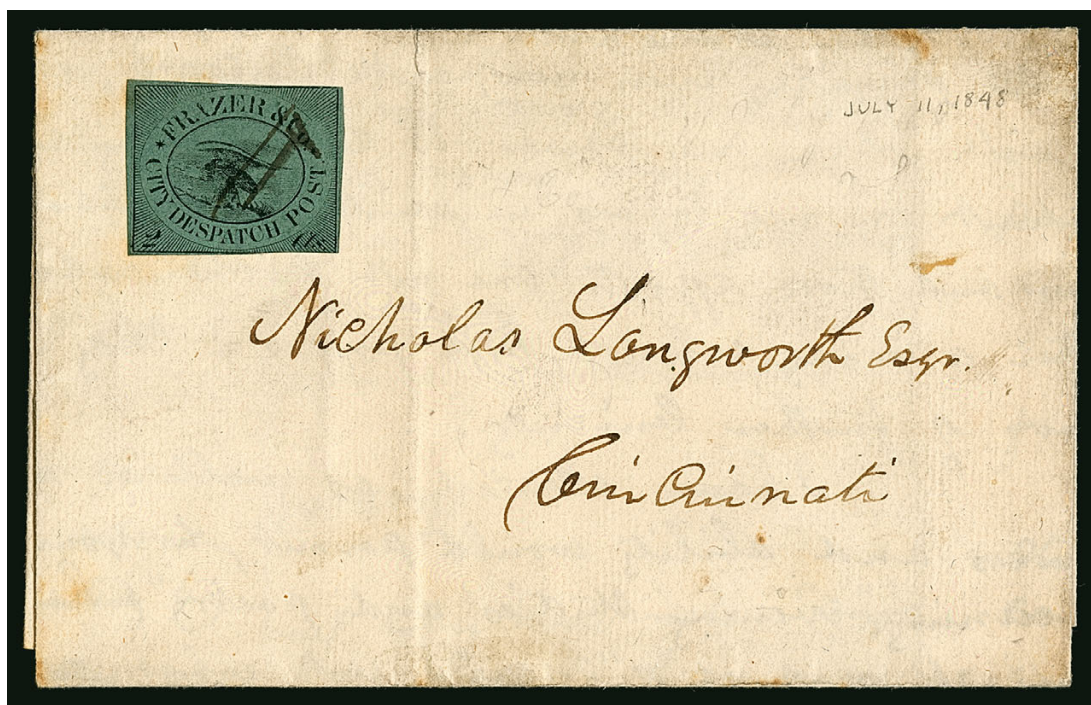 ★ FRAZER & Co.
CITY DESPATCH POST
2 Cts
JULY 11, 1848
Nicholas Longworth Esqr.
Cincinnati